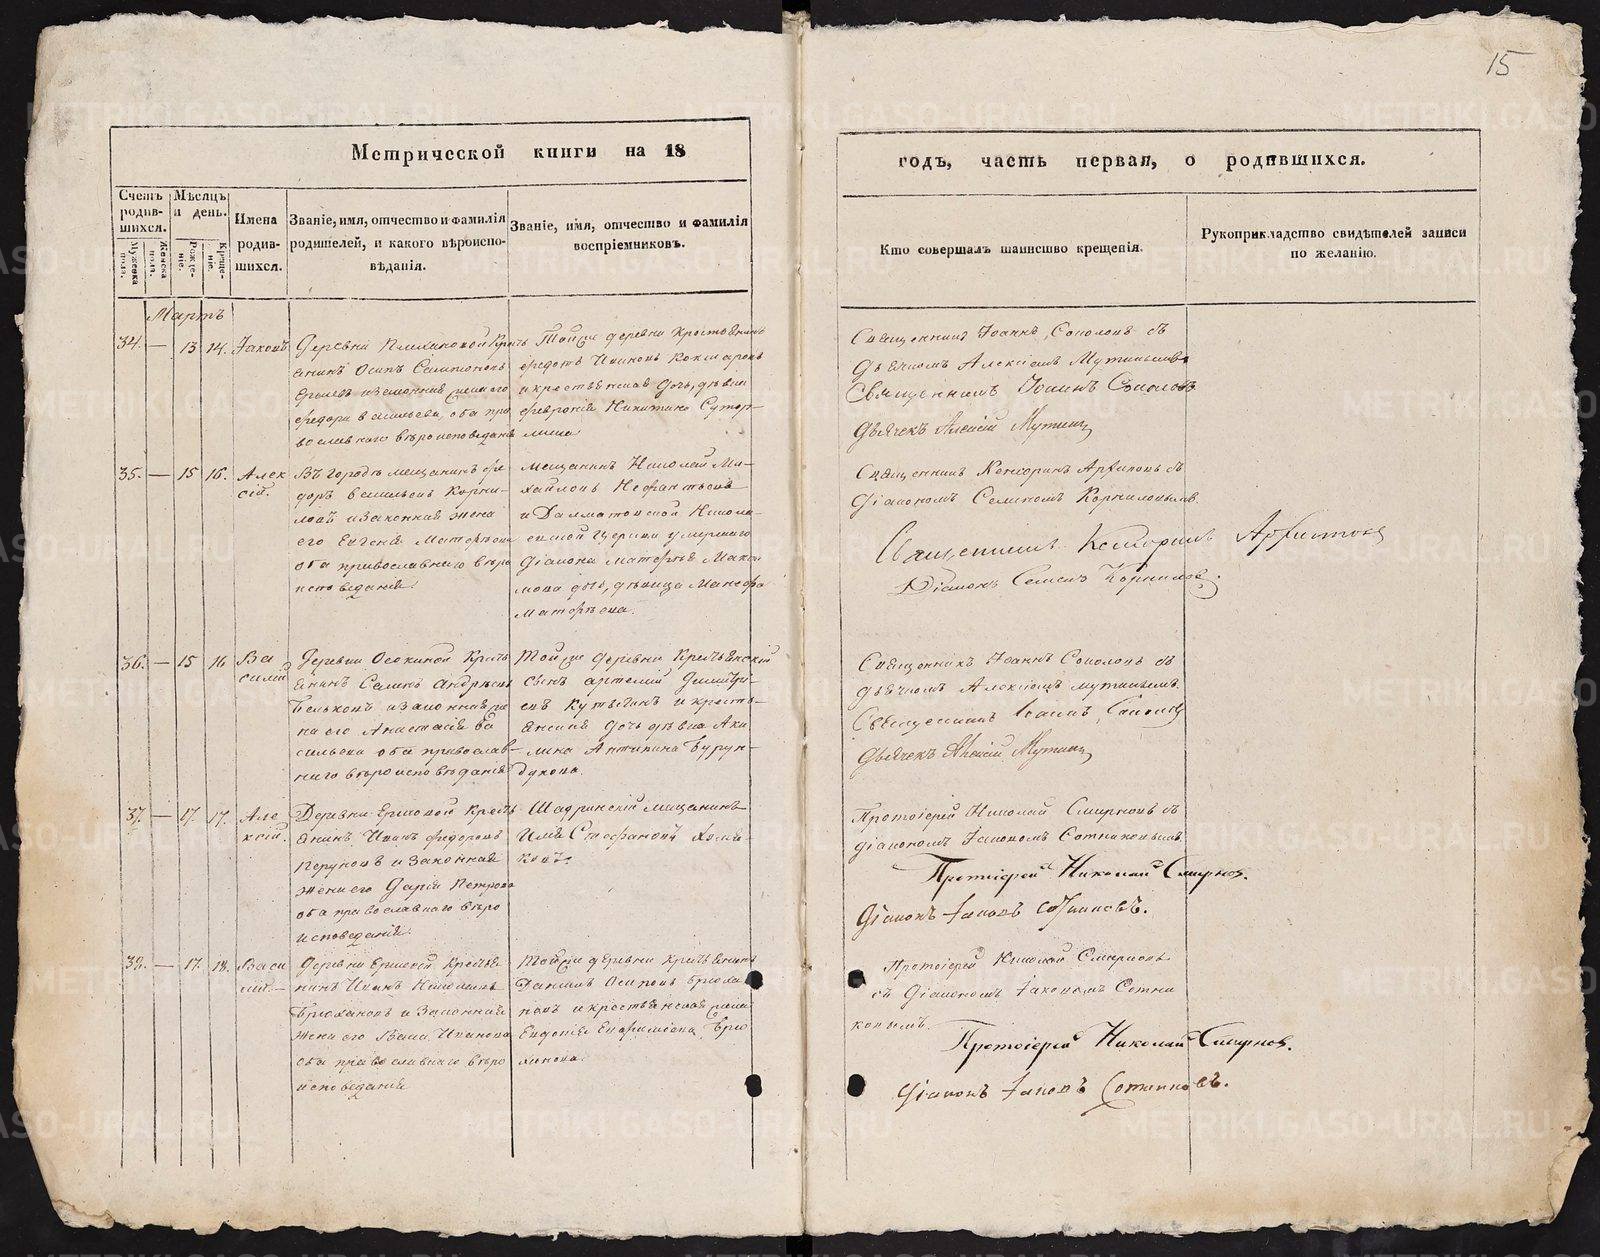 15
Метрической книги на 18
годъ, часть первая, о родившихся.
Счетъ родив-шихся.
Мужеска пола.
Женска пола.
Мѣсяцъ и день.
Рожде-ніе.
Креще-ніе.
Имена родив-шихся.
Званіе, имя, отчество и фамилія
родителей, и какого вѣроиспо-
вѣданія.
Званіе, имя, отчество и фамилія
воспріемниковъ.
Кто совершалъ таинство крещенія.
Рукоприкладство свидѣтелей записи
по желанію.
Мартъ
34. — 13 14. Іаковъ
Деревни Крсть
янинъ Осипъ
законная жена его
Ѳедора Васильева, оба пра
вославнаго вѣроисповеданія
Той же деревни крестьянинъ
Ѳедотъ Ивановъ Кокшаровъ
и крестьянская дочь, дѣвка
Ѳевронія Никитина Сутор-
мина
Священникъ Іоаннъ Соколовъ съ
дьячкомъ Алексіемъ Мутинымъ
Священникъ Іоаннъ Соколовъ
Дьячекъ Алексій Мутинъ
35. — 15 16. Алек
сій.
Въ городѣ мещанинъ Ѳе
доръ Васильевъ Корни-
ловъ и законная жена
его Евгенія Матѳѣева
оба православнаго вѣро
исповеданія.
Мещанинъ Николай Ми-
хайловъ
и Далматовской Никола-
евской церкви умершаго
діакона Матѳѣя Макси
мова дочь, дѣвица
Матѳѣева.
Священникъ Кенсоринъ Арѳиповъ съ
Діакономъ Семеномъ Корниловымъ
Священникъ Кенсоринъ
Діаконъ Семенъ Корниловъ.
36. — 15 16 Ва
силий
Деревни Осокиной Крсть
янинъ Семенъ Андрѣевъ
Бѣльковъ и законная же
на его Анастасія Ва
сильева оба православ-
наго вѣроисповѣданія
Той же деревни Крестьянской
сынъ Артемій Димитрі-
евъ и кресть-
янская дочь дѣвка Аки
лина Антипина Бурун-
дукова.
Священникъ Іоаннъ Соколовъ съ
дьячкомъ Алексіемъ Мутинымъ.
Священникъ Іоаннъ Соколовъ
Дьячекъ Алексій Мутинъ
37. — 17. 17. Але
ксій.
Деревни Ершовой Кресть
янинъ Иванъ Ѳедоровъ
Перуновъ и законная
жена его Дарія Петрова
оба православнаго вѣро
исповеданія.
Шадринскій мещанинъ
Илья Стефановъ
Протоіерей Николай Смирновъ съ
діакономъ Іаковомъ Сотниковымъ.
Протоіерей Николай Смирновъ.
Діаконъ Іаковъ Сотниковъ.
38. — 17. 18. Васи
лій. —
Деревни Крестья
нинъ Иванъ Николаевъ
Брюхановъ и законная
жена его Васса Иванова
оба православнаго вѣро
исповеданія
Той же деревни крестьянинъ
Даниилъ Осиповъ Брюха
новъ и крестьянская
Евдокія Ефимьева Брю
ханова.
Протоіерей Николай Смирновъ
съ діакономъ Іаковомъ Сотни
ковымъ.
Протоіерей Николай Смирновъ.
Діаконъ Іаковъ Сотниковъ.
METRIKI.GASO-URAL.RU